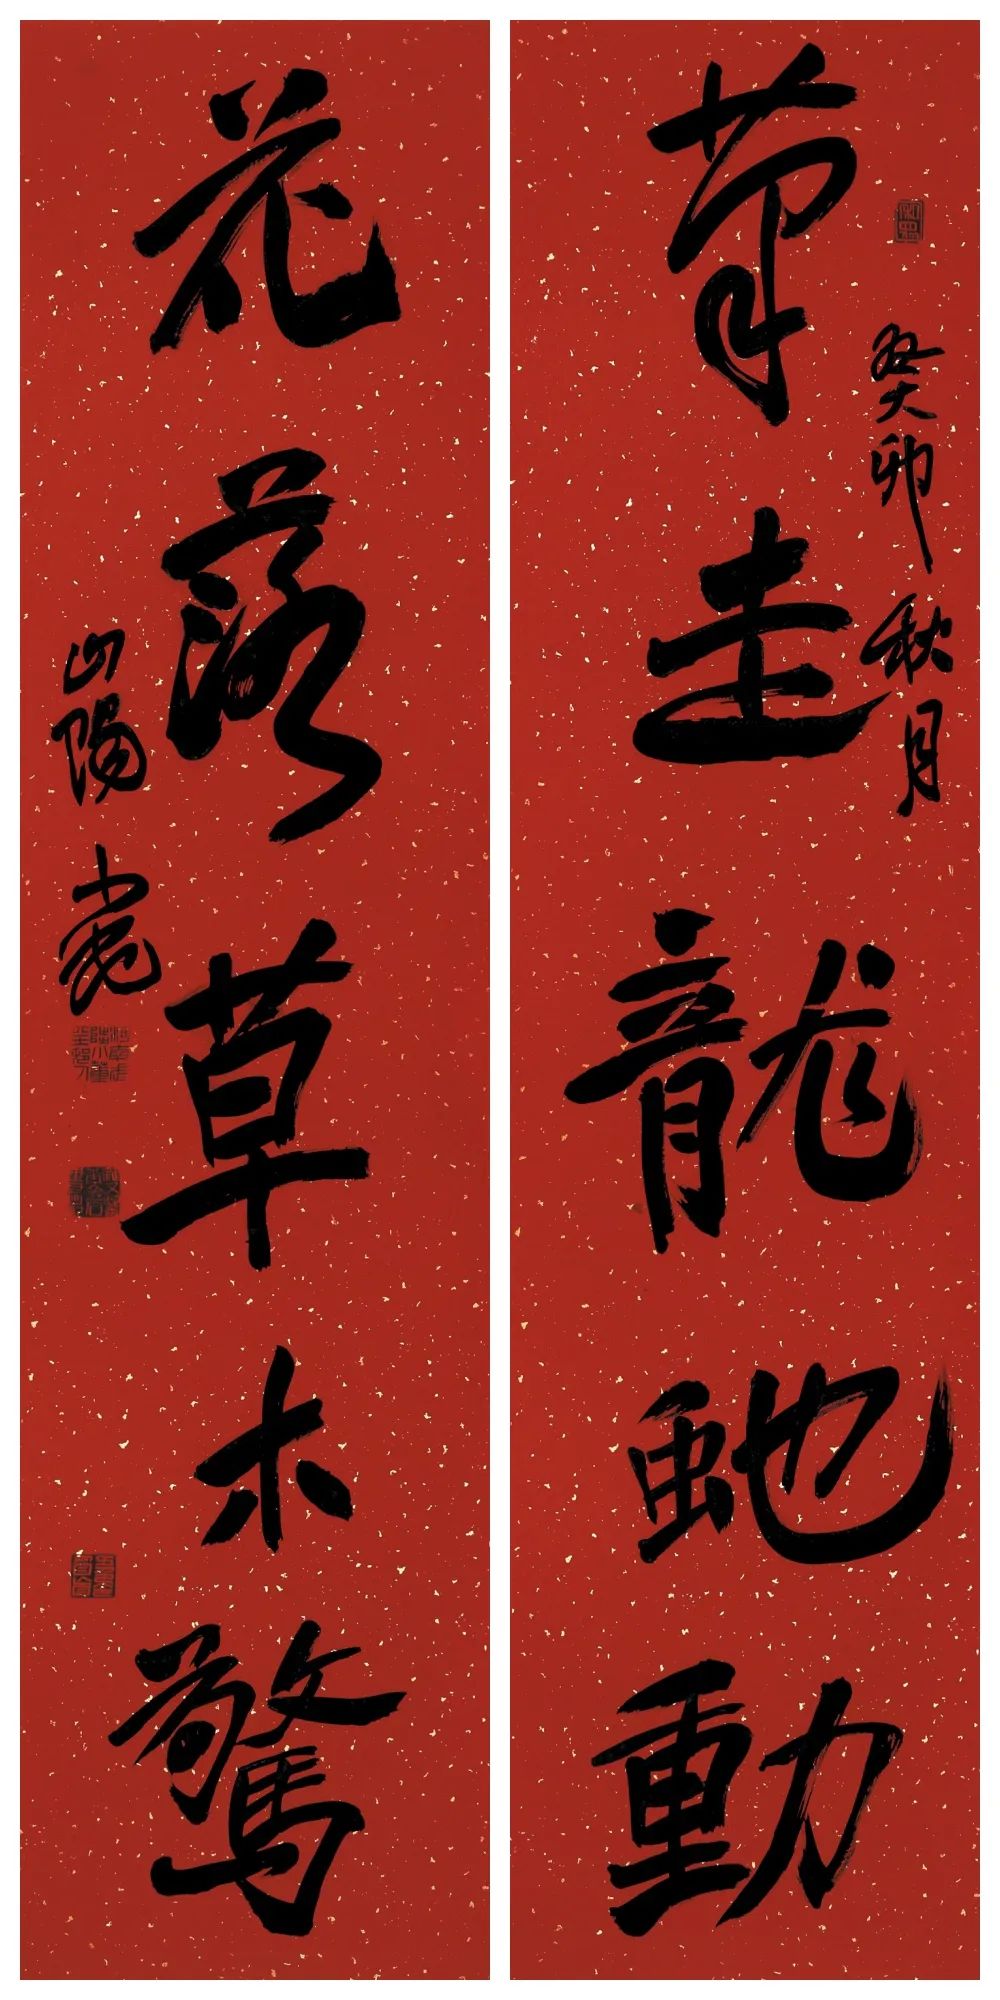 癸卯秋月
筆走龍虵動
花落草木驚
山陽小